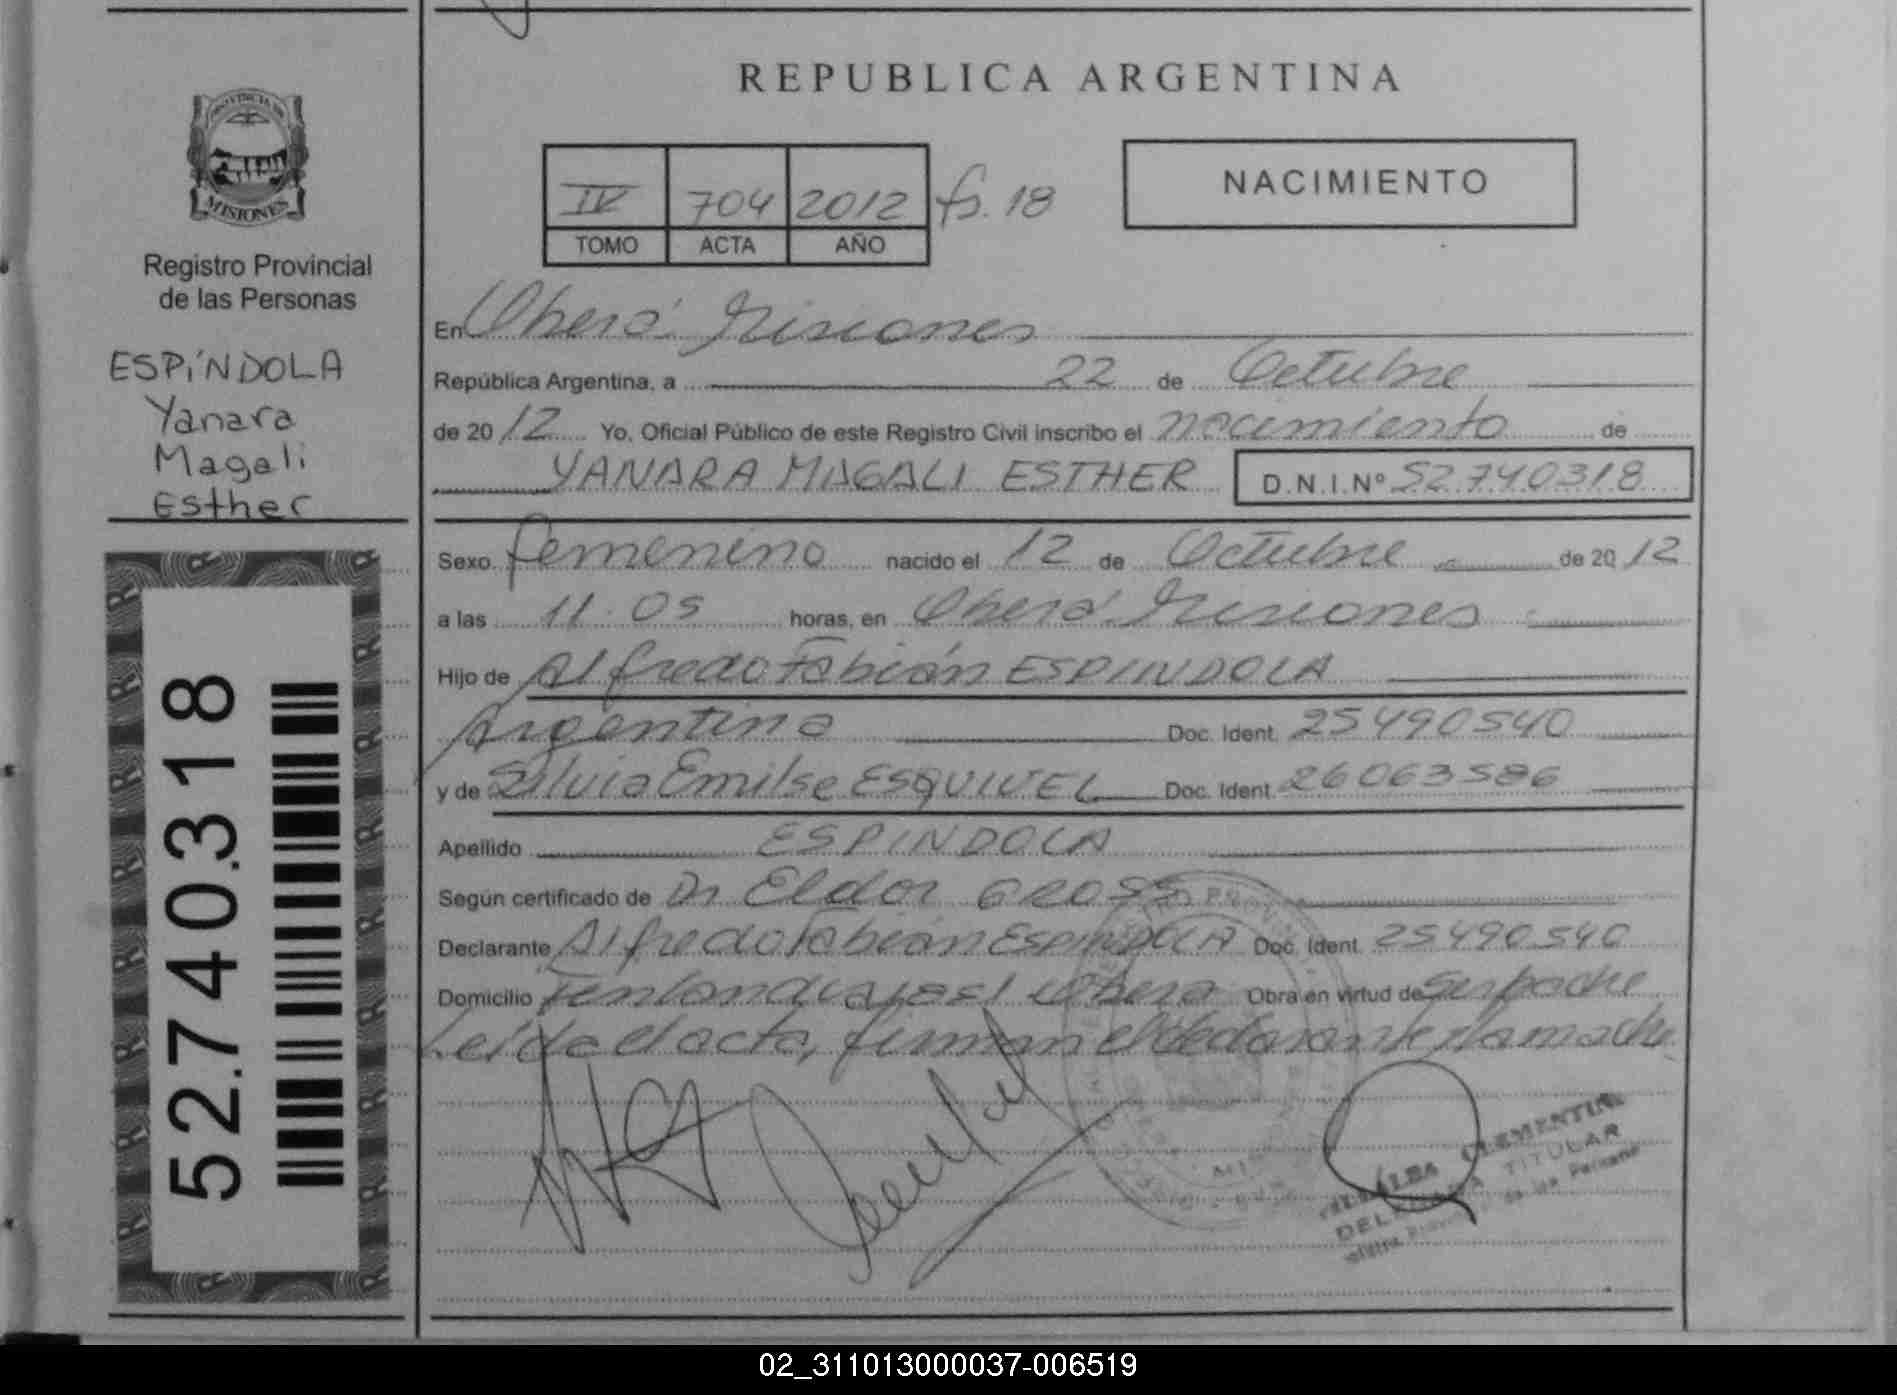 REPUBLICA ARGENTINA
PROVINCIA DE
MISIONES
Registro Provincial
de las Personas
ESPíNDOLA
Yanara
Magali
Esther
52.740.318
IV 704 2012 fs. 18
TOMO ACTA AÑO
NACIMIENTO
En Oberá Misiones
República Argentina, a 22 de Octubre
de 2012 Yo, Oficial Público de este Registro Civil inscribo el nacimiento de
YANARA MAGALI ESTHER D.N.I.Nº 52740318
Sexo femenino nacido el 12 de Octubre de 2012
a las 11.05 horas, en Oberá Misiones
Hijo de Alfredo Fabián ESPINDOLA
Argentina Doc. Ident. 25490540
y de Silvia Emilse ESQUIVEL Doc. Ident. 26063586
Apellido ESPINDOLA
Según certificado de Dr Eldor GROSS
Declarante Alfredo Fabián ESPINDOLA Doc. Ident. 25490540
Domicilio Oberá Obra en virtud de ser padre
Leída el acta, firman el declarante y la madre
CLEMENTINA
TITULAR
de las Personas
02_311013000037-006519